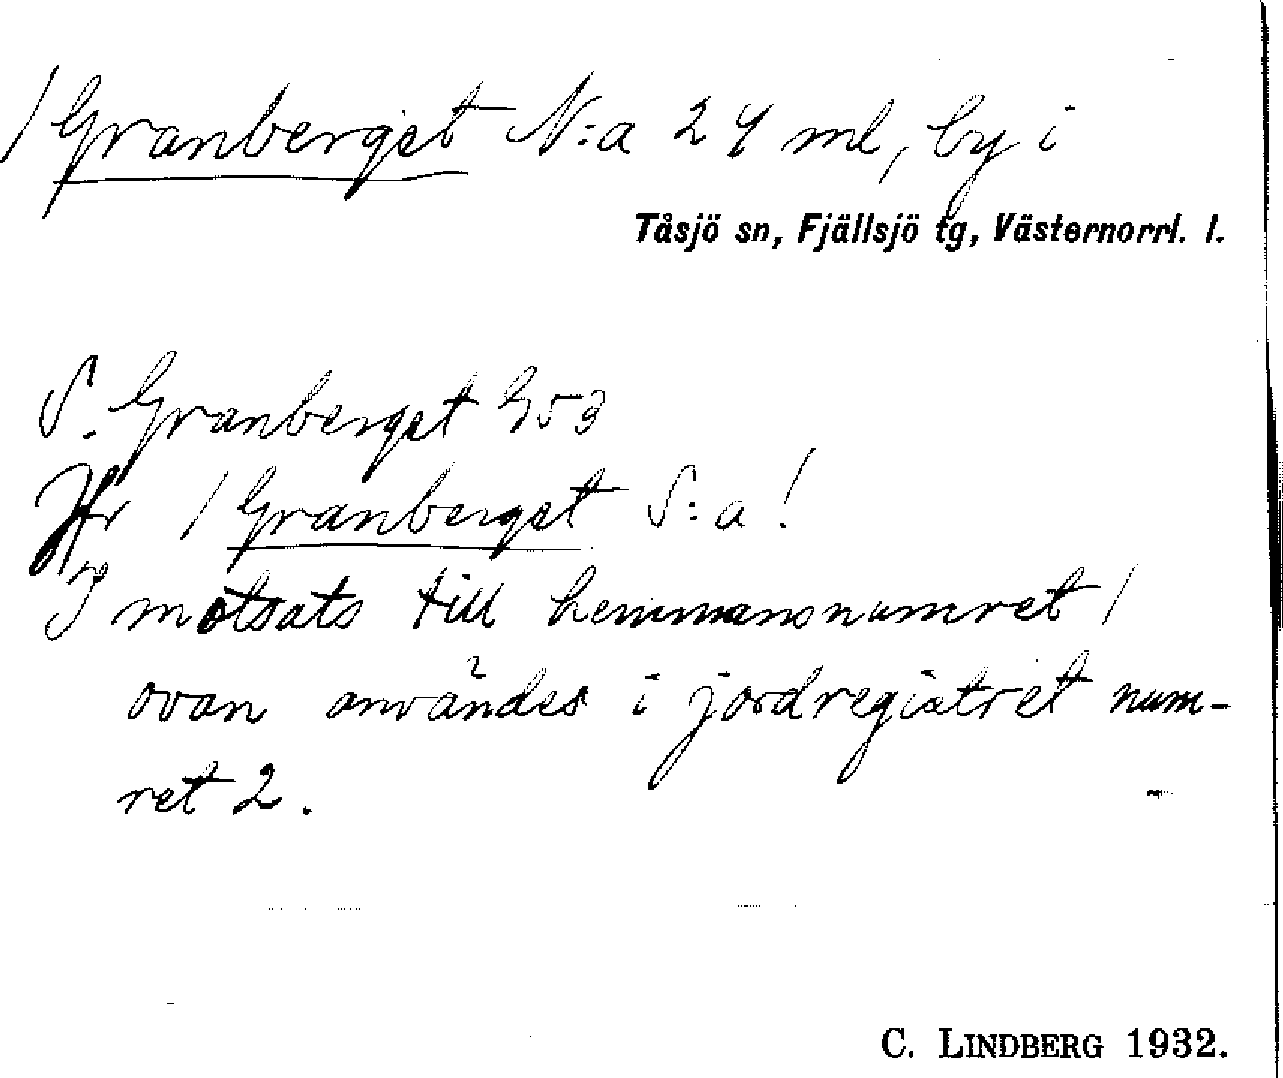 1 Granberget N:a 2 4 ml, by i
Tåsjö sn, Fjällsjö tg, Västernorrl. l.
S. Granberget G53
Jfr 1 Granberget S:a!
I motsats till hemmansnumret 1
ovan användes i jordregistret num-
ret 2.
C. LINDBERG 1932.